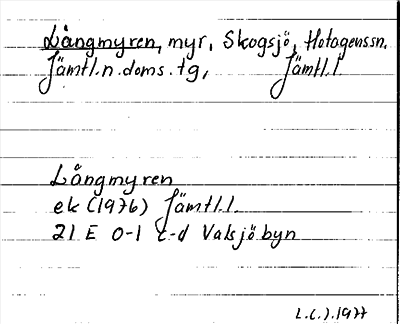 Långmyren, myr, Skogsjö, Hotagens sn.
Jämtl.n.doms.tg, Jämtl.l.
Långmyren
ek (1976) Jämtl.l.
21 E 0-1 c-d Valsjöbyn
L.(.).1977